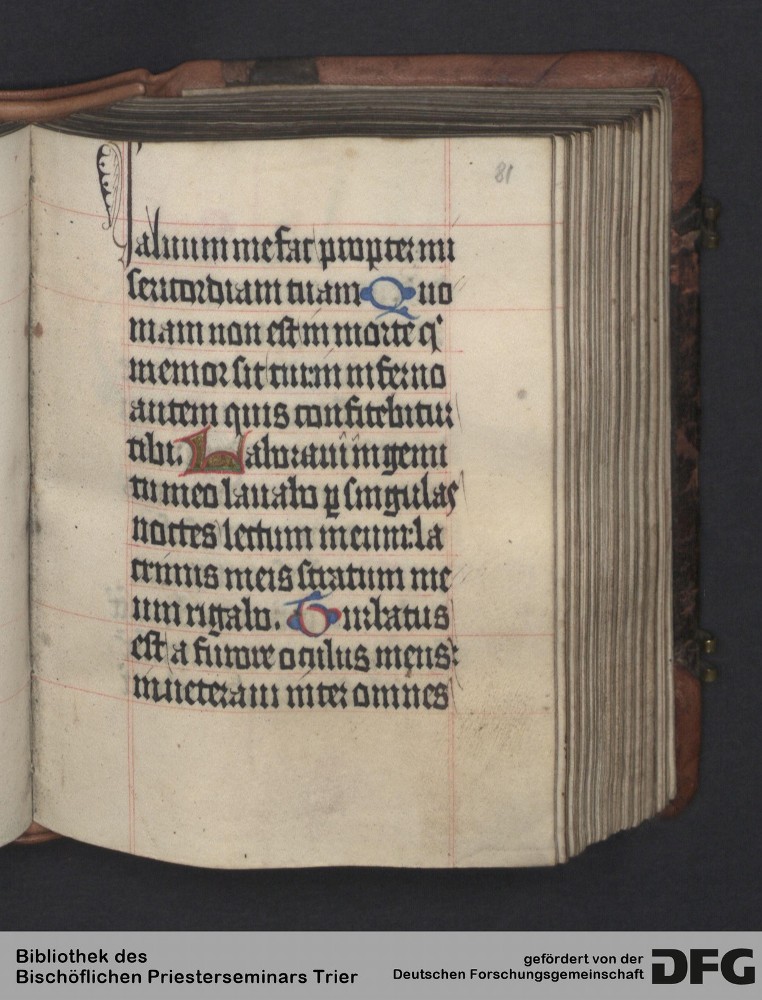 81
Saluum me fac propter mi
sericordiam tuam Quo
niam non est in morte qͥ
memor sit tui: in inferno
autem quis confitebitur
tibi. Laboraui in gemi
tu meo lauabo ꝑ singulas
noctes lectum meum: la
crimis meis stratum me
um rigabo. Turbatus
est a furore oculus meus:
inueteraui inter omnes
Bibliothek des
Bischöflichen Priesterseminars Trier
gefördert von der
Deutschen Forschungsgemeinschaft
DFG